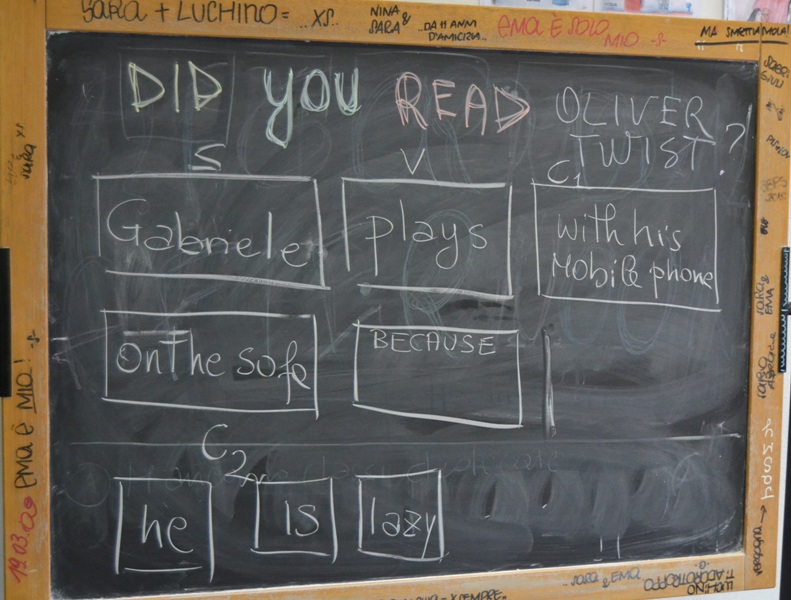 SARA + LUCHINO = ..XS..
NINA & SARA
..DA 11 ANNI D'AMICIZIA..
EMA È SOLO MIO -S-
MA SMETTIAMOLA!
DID YOU READ OLIVER TWIST ?
S
V
C1
Gabriele
plays
with his
mobile phone
on the sofa
BECAUSE
C2
he
is
lazy
SARA XS
EMA È MIO! -S-
19.03.09
SARA & EMA
SARA & EMA